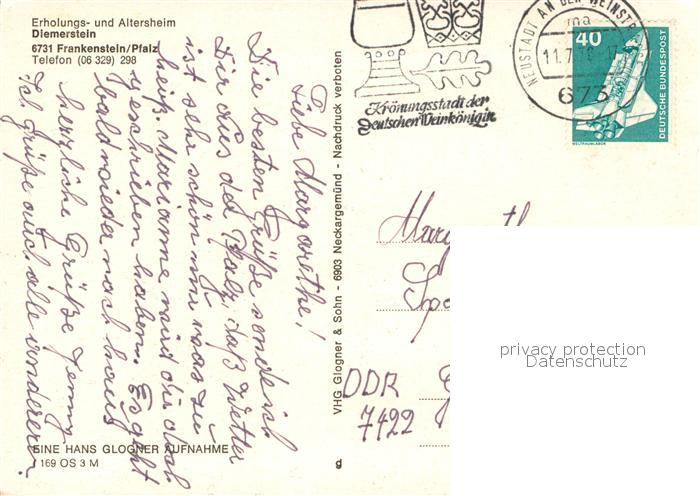 Erholungs- und Altersheim
Diemerstein
6731 Frankenstein/Pfalz
Telefon (06 329) 298
Liebe Margarethe!
Die besten Grüße sende ich
Dir aus der Pfalz, daß Wetter
ist sehr schön nur was zu
heiß. Marianne wird dir doch
geschrieben haben. Es geht
bald wieder nach haus
herzliche Grüße Jenny
Ich grüße auch alle anderen.
EINE HANS GLOGNER AUFNAHME
169 OS 3 M
VHG Glogner & Sohn - 6903 Neckargemünd - Nachdruck verboten
g
Krönungsstadt der
Deutschen Weinkönigin
NEUSTADT AN DER WEINSTR
ma
11.7
673
40
DEUTSCHE BUNDESPOST
WELTRAUMLABOR
DDR
7422
privacy protection
Datenschutz